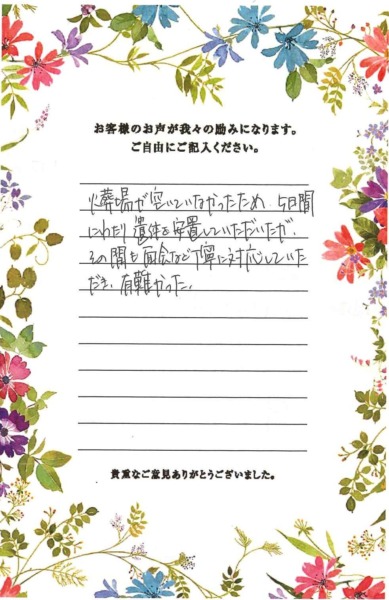 お客様のお声が我々の励みになります。
ご自由にご記入ください。
火葬場が空いていなかったため、5日間
にわたり遺体を安置していただいたが、
その間も面会など丁寧に対応していた
だき、有難かった。
貴重なご意見ありがとうございました。